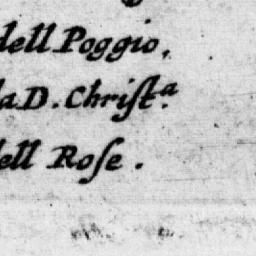 dell Poggio.
la D. Christ.ª
dell Rose.